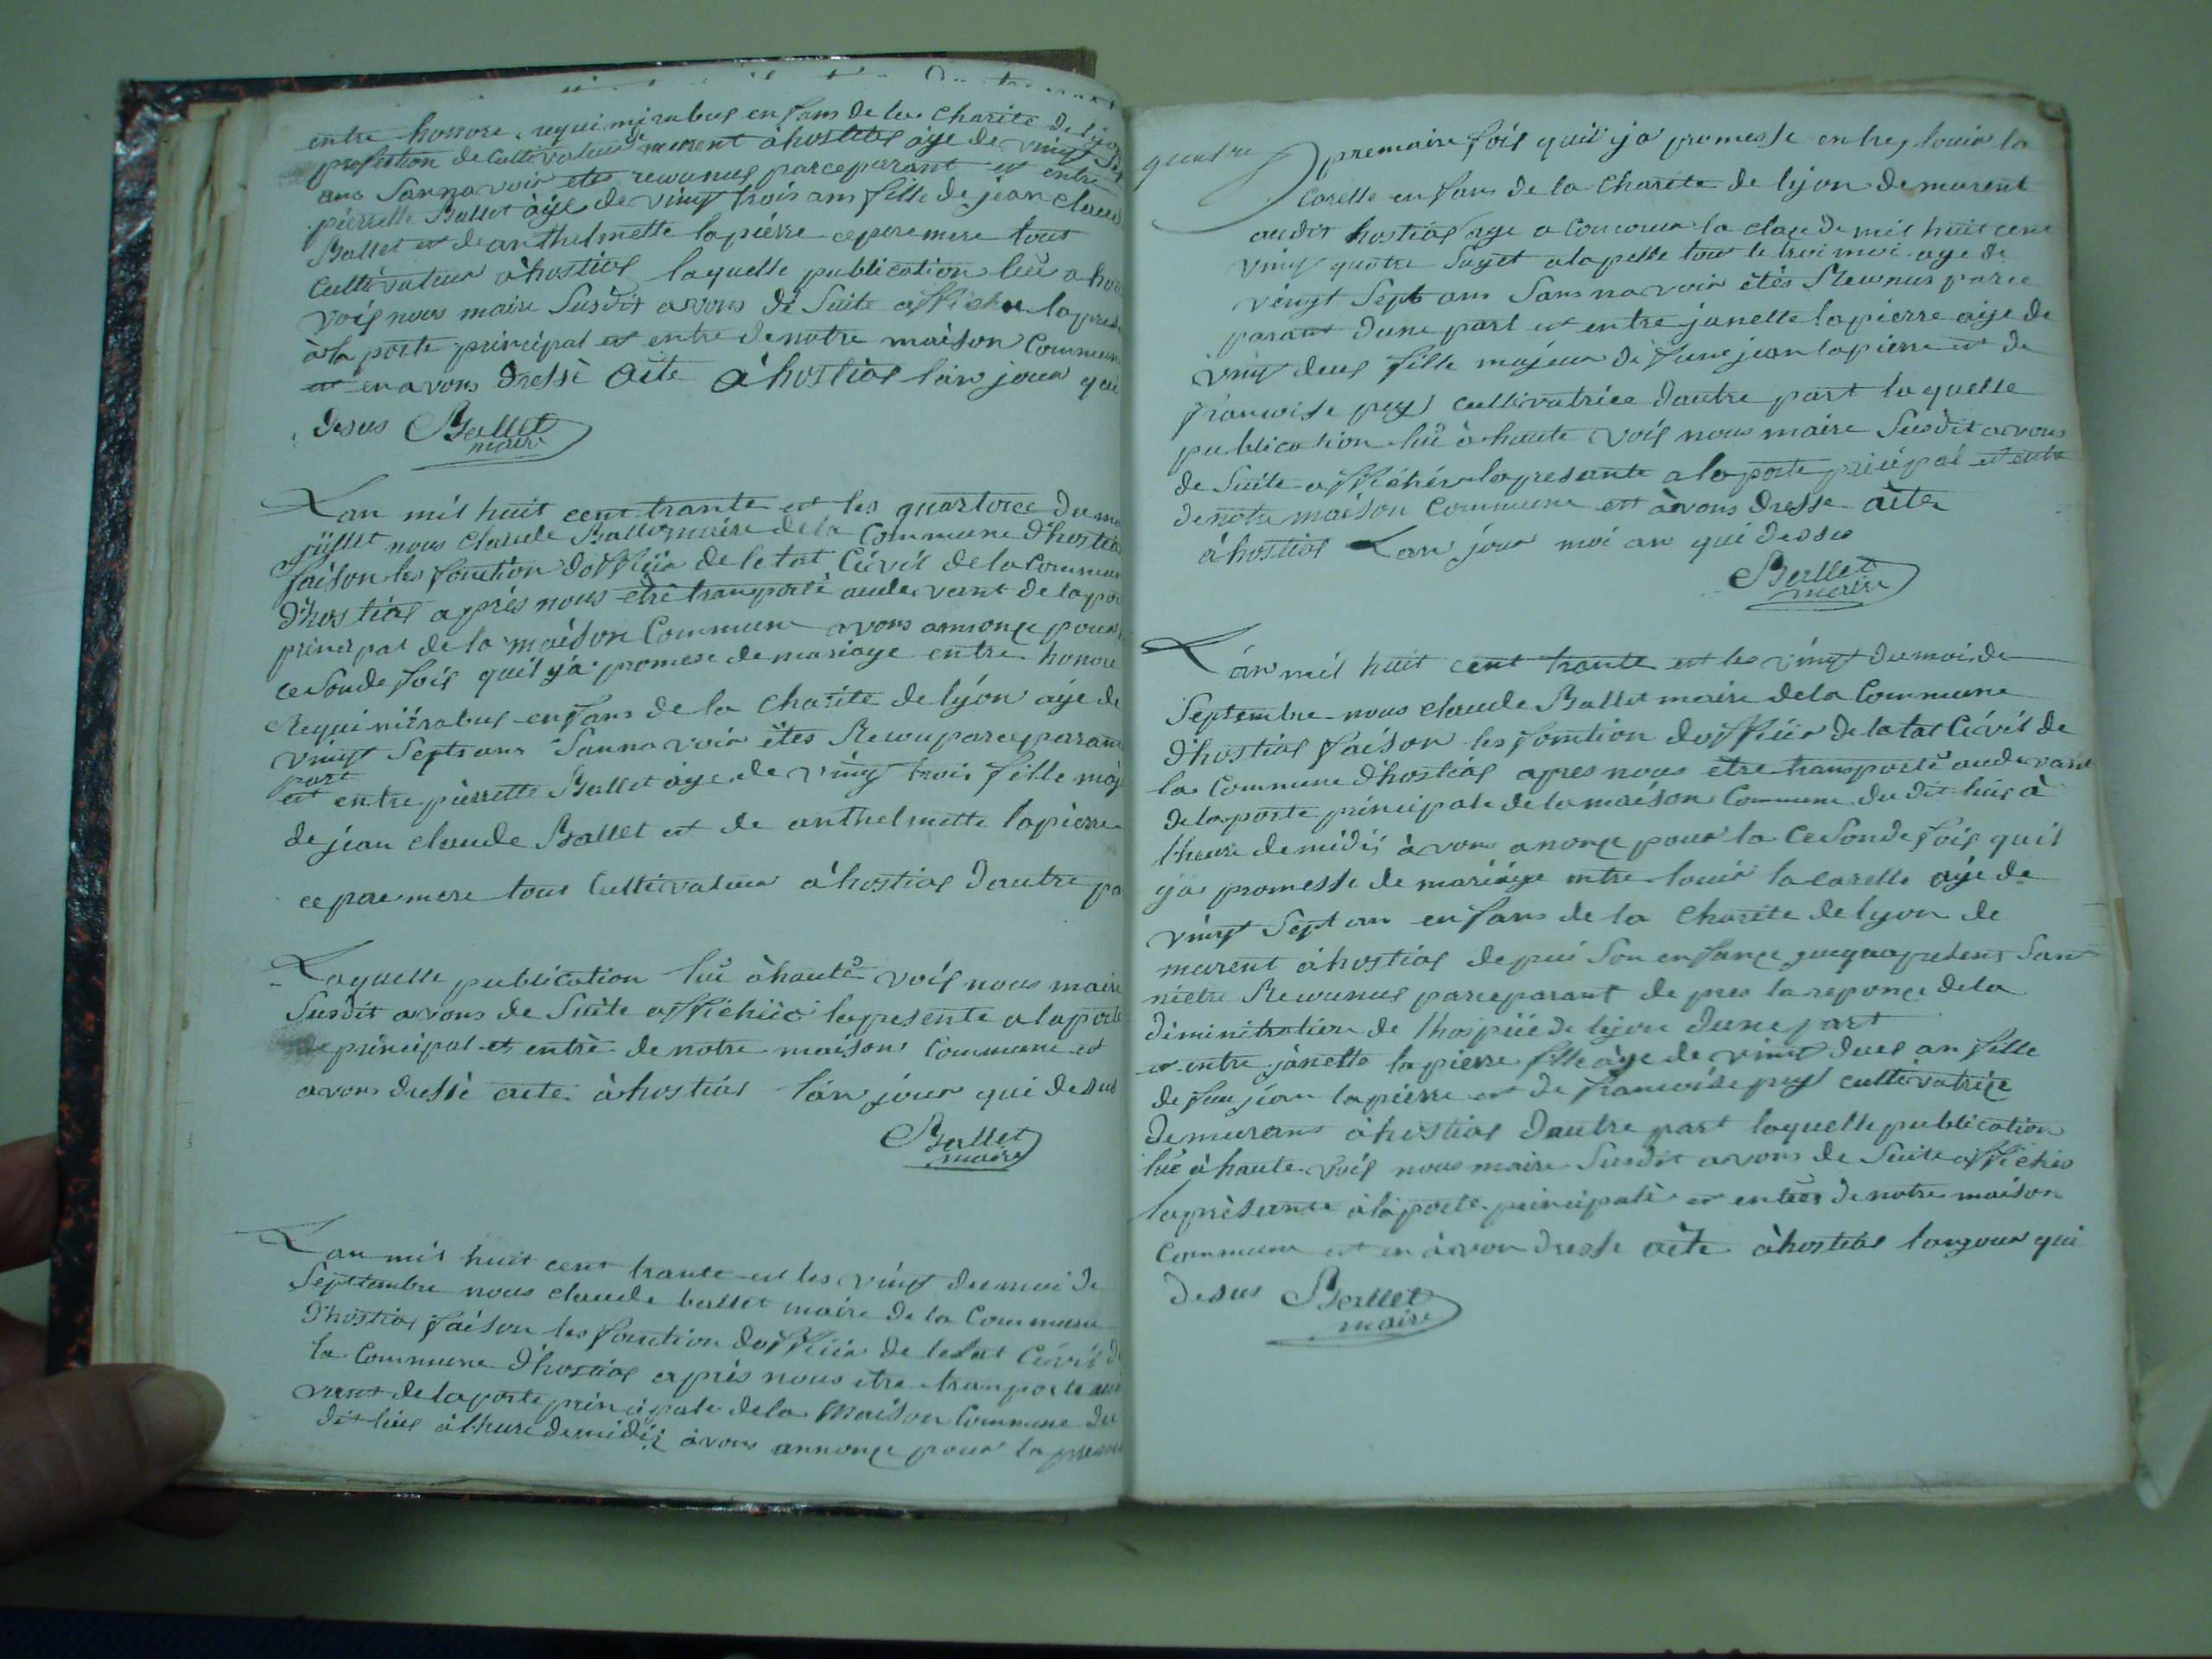 entre honore requimirabus enfans de la Charite de lyon
profection de cultivateur demurent à hostias âge de vingt sept
ans Sanna voir etes rewunus parce parrant et entre
pierrette Ballet âge de vingt trois ans fille de jean claude
Ballet et de anthelmette lapiérre ce pere mere tout
cultivateur à hostias laquelle publication lüe a haute
vois nous maire Susdit avons de Suite affiche la presente
à la porte principal et entre de notre maison Commune
et en avons dressé aite à hostias l'an jour qui
desus Ballet
maire
Lan mil huit cent trante et les quartorce du moi
juillet nous claude Ballet maire de la Commune d'hostias
faison les fonction doffisiie de letat Civil de la Commune
d'hostias apprés nous etrê transporté audevant de la porte
principal de la maison Commune avons annonçe pour
cesonde fois quil y a promese de mariage entre honore
Requimirabus enfans de la Charite de lyón âije de
vingt Septs ans Sanna voir êtes Rewu parce parant
part
et entre pièrrette Ballet âge de vingt trois fille maje
de jean claude Ballet et de anthelmette lapierre
ce pere mere tout Cultivateur à hostias dautre pa
Laquelle publication lüe à haute vois nous maire
Susdit avons de Suite affichiée la presente a la porte
principal et entrè de notre maison Commune et
avons dressè aite à hostias l'an jour qui desus
Ballet
maire
Lan mil huit cent trante et les vingt du moi de
Septembre nous claude ballet maire de la Commune
d'hostias faison les fonction doffisiie de letat Civil de
la Commune d'hostias apprés nous etre transporte aude
vant de la porte principale de la Maison Commune du
dit lieus à lhure de midis avons annonçe pour la premai
quatre premaire fois quil y a promesse entre louis la
carelle enfans de la Charite de lyon demurent
audit hostias age a concouru la clace de mil huit cent
vingt quatre Suget a la pelle tout le troi moi age de
vingt Sept ans Sans navoir êtés Rewnus parce
parant dune part et entre janette lapierre aije de
vingt deus fille majeur de fune jean lapierre et de
francoise puys cultivatrice dautre part laquelle
publication lüe à haute vois nous maire Susdit avons
de Suite affichér la presante a la porte principal et entre
de notre maison Commune et àvons dresse aite
à hostias Lan jour moi an qui dessus
Ballet
maire
Lan mil huit cent trante et les vingt du moi de
Septembre nous claude Ballet maire dela Commune
d'hostias faison les fonction doffisiie de letat Civil de
la Commune d'hostias apres nous être transporté audevant
de la porte principale de la maison Commune du dit lieis à
lheure de midis avons anonçe pour la Cesonde fois quil
ya promesse de mariâge entre louis la carelle âije de
vingt Sept an enfans de la Charite de lyon de
murent à hostias depui Son enfançe Sant
nietre Rewunus parceparant de pres la reponçe dela
diminitration de lhospiie de lyon dune part
et entre jànette lapierre fille âge de vingt deus an fille
de feu jean lapierre et de francoise puys cultivatriçe
demurans à hostias dautre part laquelle publication
lüe à haute vois nous maire Susdit avons de Suite affichés
la prèsante à la porte principale et entrés de notre maison
Commune et en àvon dresse aite à hostias lan jour qui
desus Ballet
maire